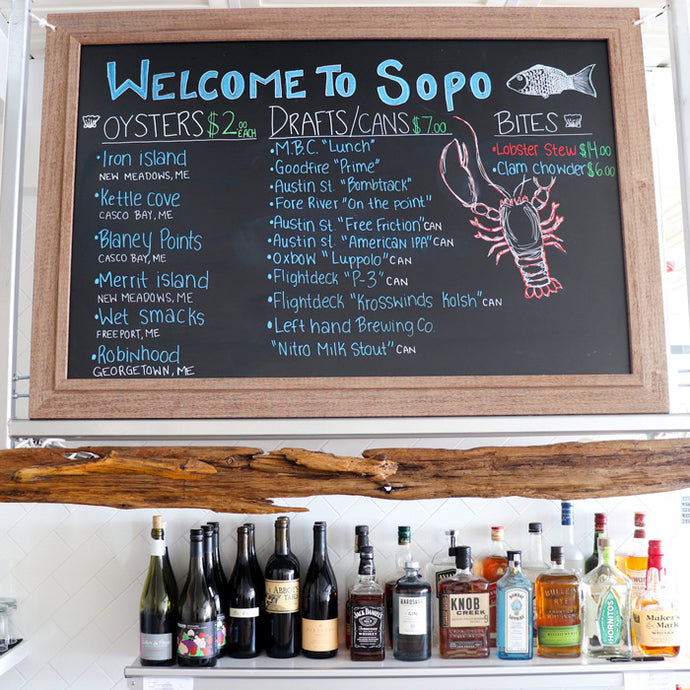 WELCOME TO SOPO
OYSTERS $2.00 EACH
•Iron island
NEW MEADOWS, ME
•Kettle cove
CASCO BAY, ME
•Blaney Points
CASCO BAY, ME
•Merrit island
NEW MEADOWS, ME
•Wet smacks
FREEPORT, ME
•Robinhood
GEORGETOWN, ME
DRAFTS/CANS $7.00
•M.B.C. "Lunch"
•Goodfire "Prime"
•Austin st. "Bombtrack"
•Fore River "On the point"
•Austin st. "Free Friction" CAN
•Austin st. "American IPA" CAN
•Oxbow "Luppolo" CAN
•Flightdeck "P-3" CAN
•Flightdeck "Krosswinds Kolsh" CAN
•Left hand Brewing Co.
"Nitro Milk Stout" CAN
BITES
•Lobster Stew $14.00
•Clam chowder $6.00
ABBOT'S
TABLE
JACK DANIEL'S
KNOB
CREEK
9
BOMBAY
BULLEIT
HORNITOS
Maker's
Mark